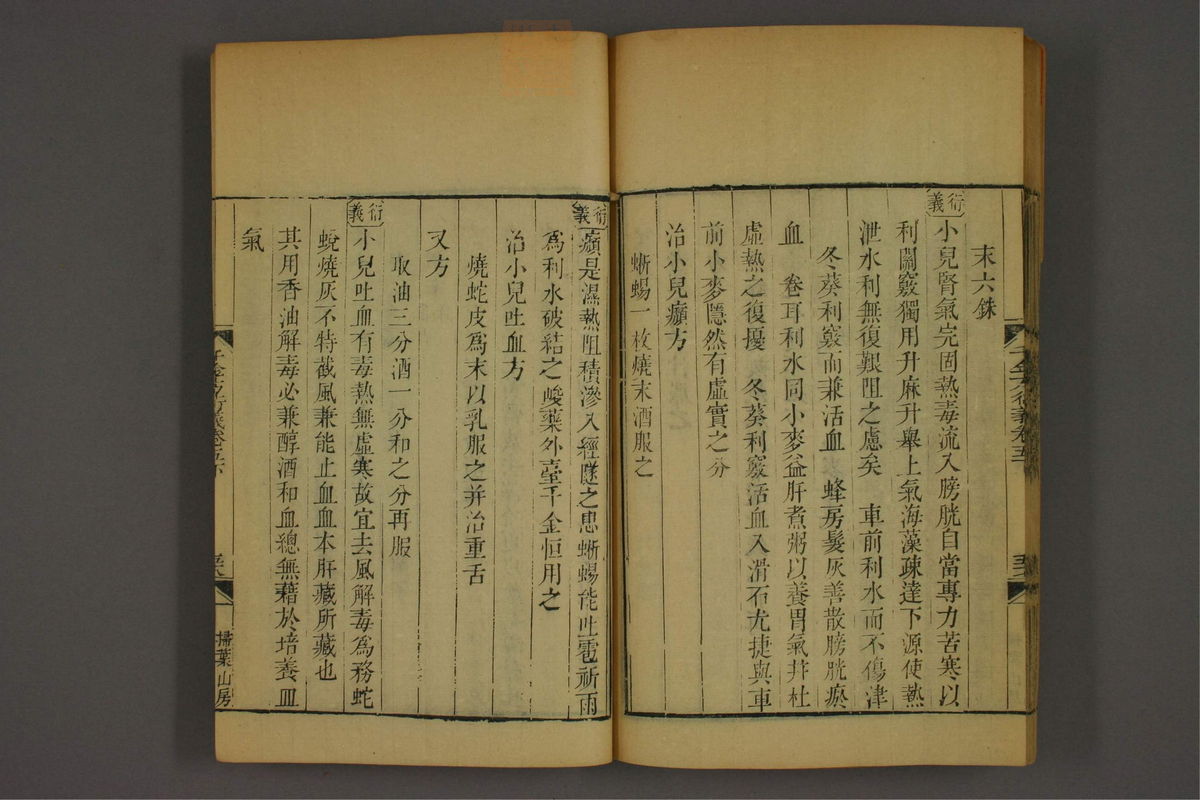 末六銖
衍義
小兒腎氣完固熱毒流入膀胱自當專力苦寒以
利關竅獨用升麻升舉上氣海藻疎達下源使熱
泄水利無復艱阻之慮矣　車前利水而不傷津
冬葵利竅而兼活血　蜂房髮灰善散膀胱瘀
血　卷耳利水同小麥益肝煮粥以養胃氣幷杜
虛熱之復擾　冬葵利竅活血入滑石尤捷與車
前小麥隱然有虛實之分
治小兒㿗方
蜥蜴一枚燒末酒服之
衍義
㿗是濕熱阻積滲入經隧之患蜥蜴能吐雹祈雨
爲利水破結之峻藥外臺千金恒用之
治小兒吐血方
燒蛇皮爲末以乳服之并治重舌
又方
取油三分酒一分和之分再服
衍義
小兒吐血有毒熱無虛寒故宜去風解毒爲務蛇
蛻燒灰不特截風兼能止血血本肝藏所藏也
其用香油解毒必兼醇酒和血總無藉於培養血
氣
千金方衍義卷五下
掃葉山房